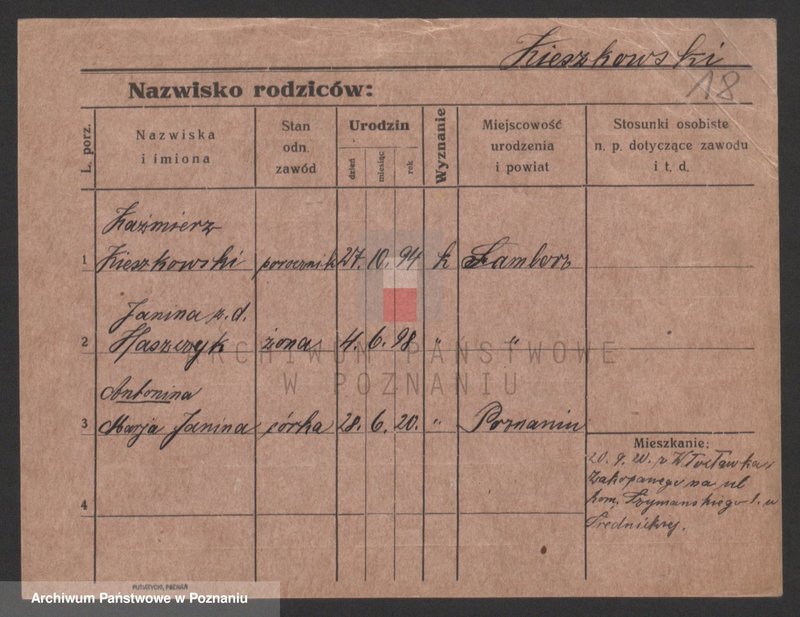 Kieszkowski
18
Nazwisko rodziców:
L. porz.
Nazwiska
i imiona
Stan
odn.
zawód
Urodzin
dzień
miesiąc
rok
Wyznanie
Miejscowość
urodzenia
i powiat
Stosunki osobiste
n. p. dotyczące zawodu
i t. d.
Kaźmierz
1 Kieszkowski porucznik 27. 10. 94 k Sambor
Janina z. d.
2 Haszczyk żona 4. 6. 98 " "
Antonina
3 Marja Janina córka 28. 6. 20. " Poznaniu
Mieszkanie:
20. 9. 20. z Włocławka
Zakopanego na ul
kom. Szymańskiego l. u
Średnickiej.
4
ARCHIWUM PAŃSTWOWE
W POZNANIU
Archiwum Państwowe w Poznaniu